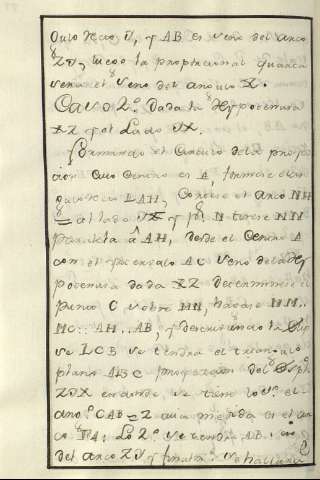 cuio Radio D, y AB es seno del arco
ZD, luego la proporcional quarta
sera el seno del angulo X.
Caso 2º. Dada la Hypotenusa
XZ y el Lado DX.
el Circulo dela projec
cion cuio Centro es A, formese el an
gulo LAH, Cortese el arco NH
= al lado DX y por N tirese NM
paralela â AH, desde el Centro A
con el intervalo AC seno dela Hy
potenusa dada XZ determinese el
punto C sobre MN, hagase NM..
MC:: AH..AB, y descriviendo la Elip
se LCB se tendra el triangulo
plano ABC projeccion del Sph.
ZDX en donde se tiene lo 1º. el
angº CAB = Z cuia medida es el ar
co Lo 2º. se tendra AB
del arco ZD y se hallara